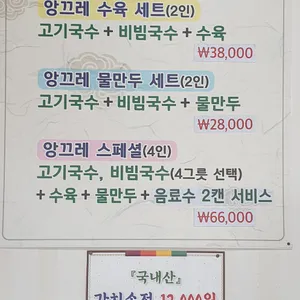 앙끄레 수육 세트(2인)
고기국수 + 비빔국수 + 수육
₩38,000
앙끄레 물만두 세트(2인)
고기국수 + 비빔국수 + 물만두
₩28,000
앙끄레 스페셜(4인)
고기국수, 비빔국수(4그릇 선택)
+ 수육 + 물만두 + 음료수 2캔 서비스
₩66,000
『국내산』